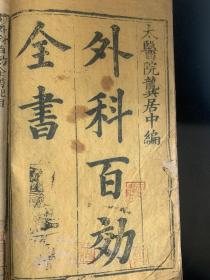 太醫院龔居中編
外科百効
全書